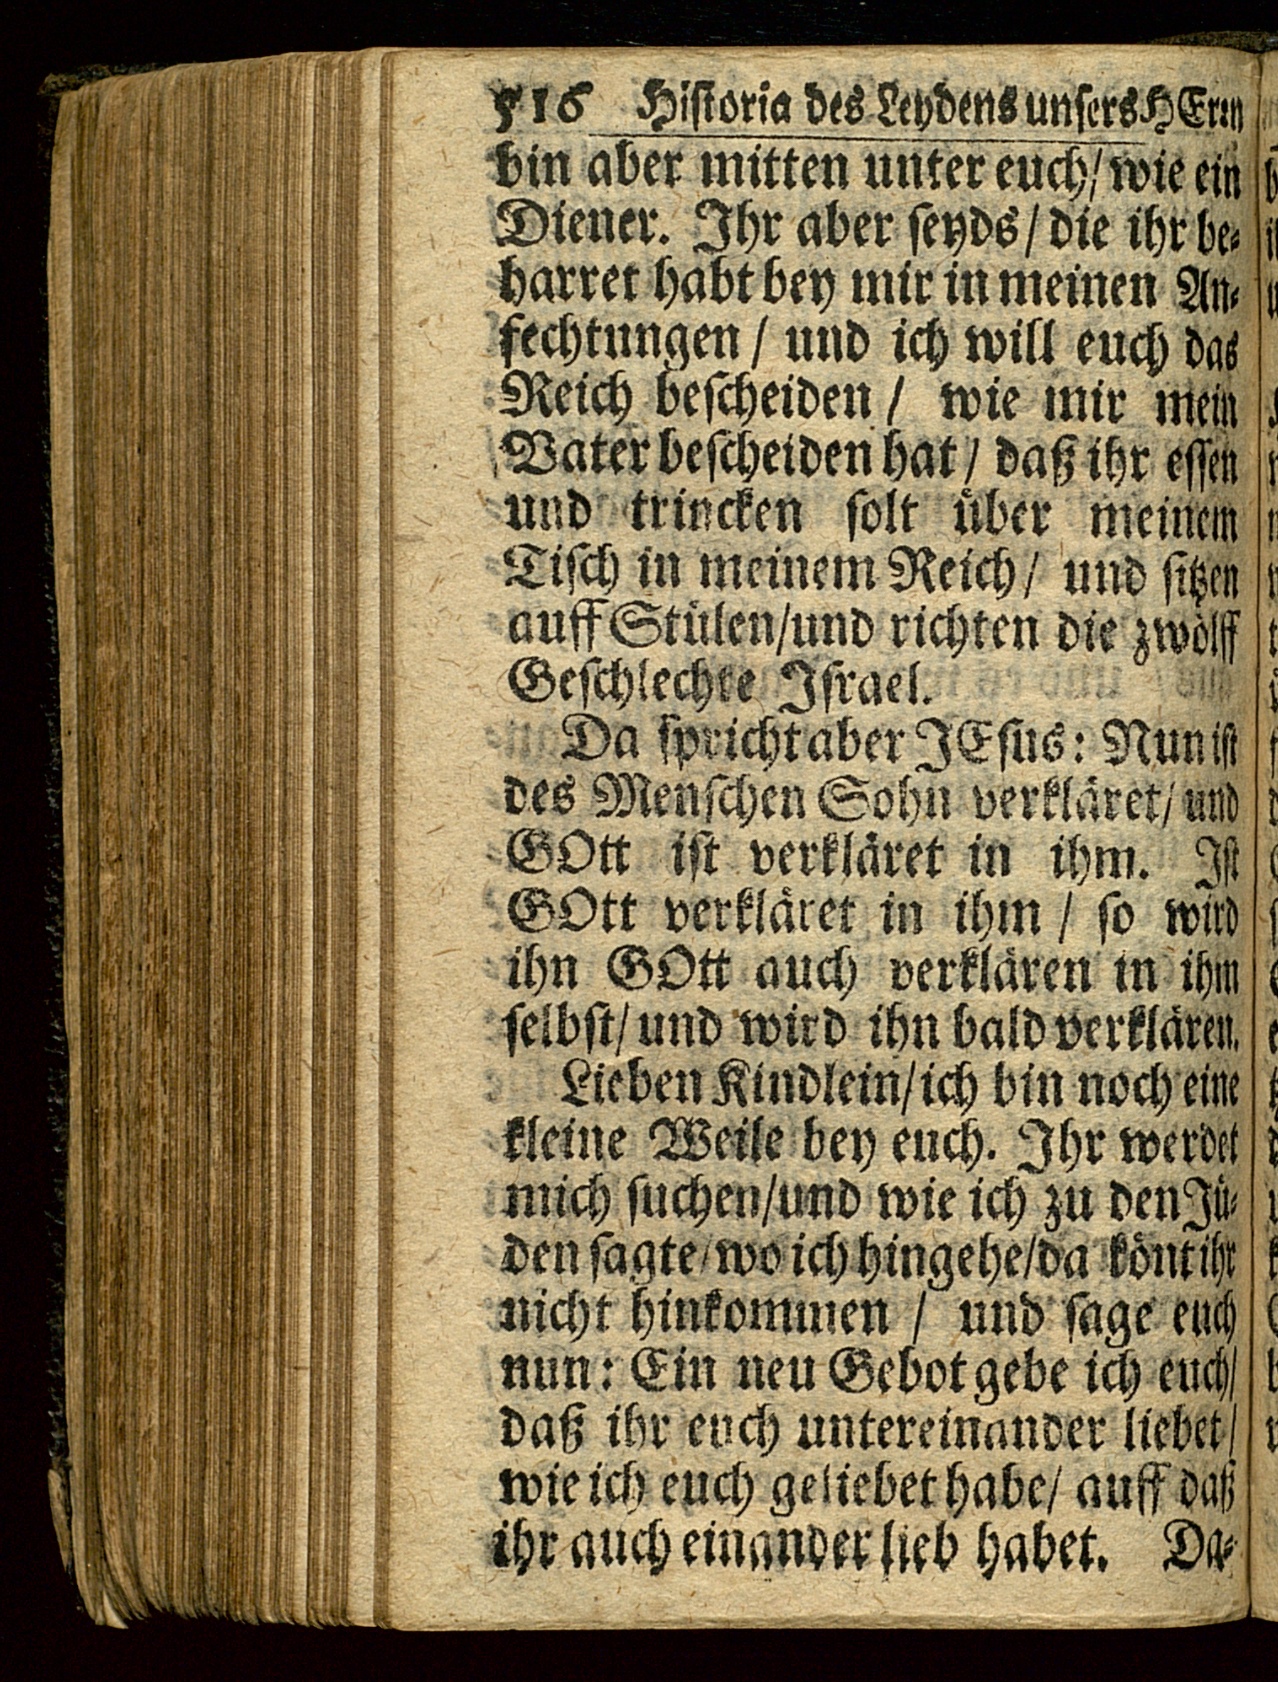 516 Historia des Leydens unsers HErrn
bin aber mitten unter euch/ wie ein
Diener. Ihr aber seyds/ die ihr be-
harret habt bey mir in meinen An-
fechtungen/ und ich will euch das
Reich bescheiden/ wie mir mein
Vater bescheiden hat/ daß ihr essen
und trincken solt über meinem
Tisch in meinem Reich/ und sitzen
auff Stülen/ und richten die zwölff
Geschlechte Israel.
Da spricht aber JEsus: Nun ist
des Menschen Sohn verkläret/ und
GOtt ist verkläret in ihm. Ist
GOtt verkläret in ihm/ so wird
ihn GOtt auch verklären in ihm
selbst/ und wird ihn bald verklären.
Lieben Kindlein/ ich bin noch eine
kleine Weile bey euch. Ihr werdet
mich suchen/ und wie ich zu den Jü-
den sagte/ wo ich hingehe/ da könt ihr
nicht hinkommen/ und sage euch
nun: Ein neu Gebot gebe ich euch/
daß ihr euch untereinander liebet/
wie ich euch geliebet habe/ auff daß
ihr auch einander lieb habet. Da-